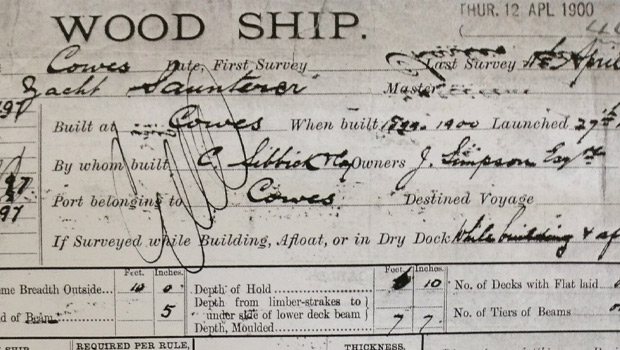 THUR. 12 APL 1900
WOOD SHIP.
Cowes Date, First Survey Last Survey 4th April
Yacht Saunterer Master
Built at Cowes When built 1899-1900 Launched 27th
By whom built C. Sibbick & Co Owners J. Simpson Esqre
Port belonging to Cowes Destined Voyage
If Surveyed while Building, Afloat, or in Dry Dock While building & af
me Breadth Outside... Feet. Inches. 0
Depth of Hold Feet. Inches. 10
No. of Decks with Flat laid
d of Beam 5
Depth from limber-strakes to under side of lower deck beam
No. of Tiers of Beams
Depth, Moulded 7 7
REQUIRED PER RULE,
THICKNESS.